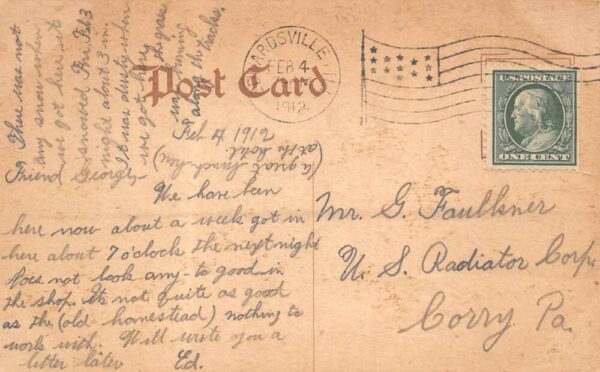 There was not
any snow when
we got here it
snowed Fri. Feb 3
night about 3 in.
It was dusty when
we got here
the grass
was burning
along the tracks.
Post Card
EDWARDSVILLE, ILL.
FEB 4
1912
U.S. POSTAGE
ONE CENT
Feb 4 1912
(a great lunch
at the hotel)
Friend George,
We have been
here now about a week got in
here about 7 o'clock the next night
Does not look any-to good in
the shop. It's not quite as good
as the (old homestead) nothing to
work with. Will write you a
letter later Ed.
Mr. G. Faulkner
U. S. Radiator Corp.
Corry Pa.